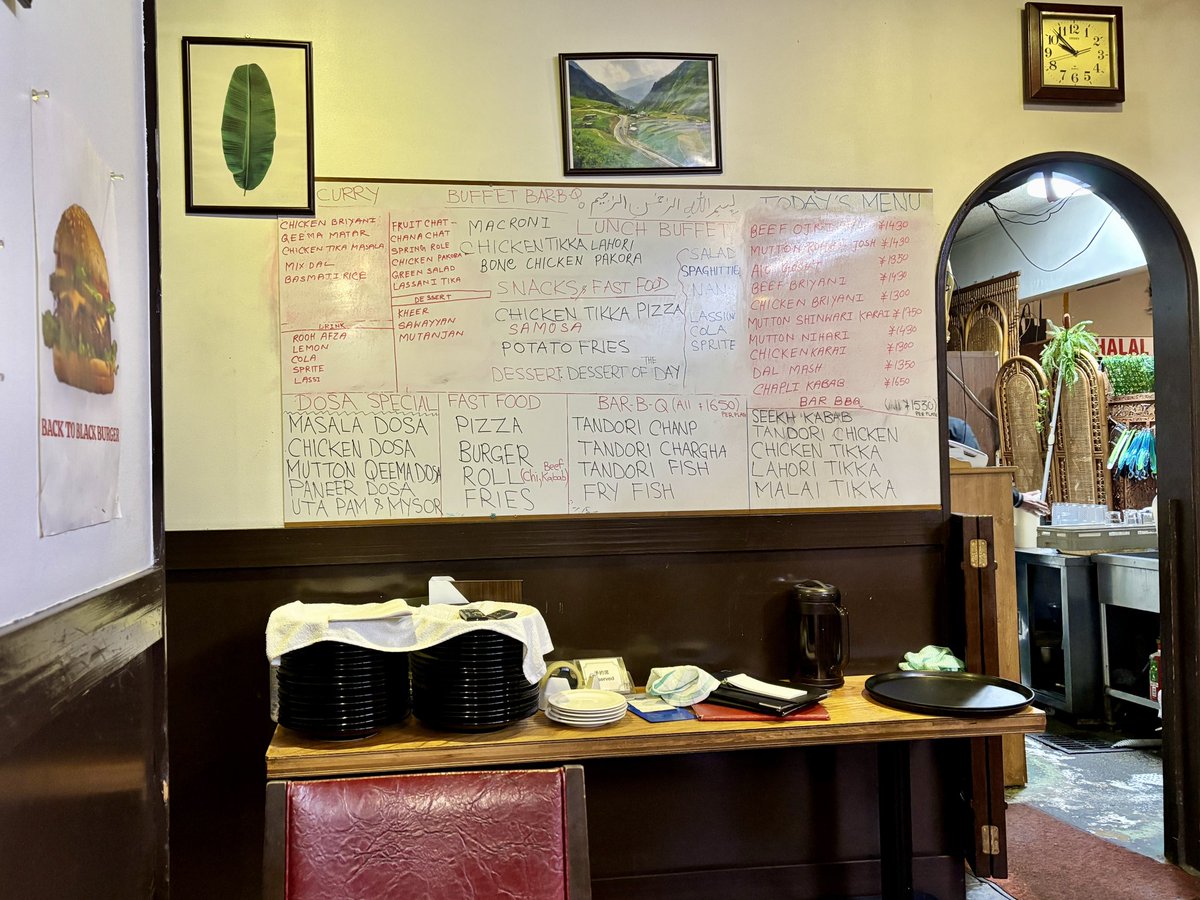 CURRY
CHICKEN BRIYANI
QEEMA MATAR
CHICKEN TIKA MASALA
MIX DAL
BASMATI RICE
DRINK
ROOH AFZA
LEMON
COLA
SPRITE
LASSI
BUFFET BARBQ
FRUIT CHAT
CHANA CHAT
SPRING ROLE
CHICKEN PAKORA
GREEN SALAD
LASSANI TIKA
DESSERT
KHEER
SAWAYYAN
MUTANJAN
بسم اللہ الرحمٰن الرحیم
MACRONI LUNCH BUFFET
CHICKEN TIKKA LAHORI
BONE CHICKEN PAKORA
SNACKS & FAST FOOD
CHICKEN TIKKA PIZZA
SAMOSA
POTATO FRIES
DESSERT DESSERT OF THE DAY
SALAD
SPAGHITTIE
NAN
LASSI
COLA
SPRITE
TODAY'S MENU
BEEF
MUTTON ROGAN JOSH ¥1490
GOSHT ¥1350
BEEF BRIYANI ¥1490
CHICKEN BRIYANI ¥1300
MUTTON SHINWARI KARAI ¥1750
MUTTON NIHARI ¥1490
CHICKEN KARAI ¥1300
DAL MASH ¥1350
CHAPLI KABAB ¥1650
BAR BBQ (All ¥1530)
PER PLATE
SEEKH KABAB
TANDORI CHICKEN
CHICKEN TIKKA
LAHORI TIKKA
MALAI TIKKA
DOSA SPECIAL
MASALA DOSA
CHICKEN DOSA
MUTTON QEEMA DOSA
PANEER DOSA
UTA PAM & MYSOR
FAST FOOD
PIZZA
BURGER
ROLL (Chi, Beef, Kabab)
FRIES
BAR-B-Q (All ¥1650)
PER PLATE
TANDORI CHANP
TANDORI CHARGHA
TANDORI FISH
FRY FISH
BACK TO BLACK BURGER
HALAL
12
11
1
10
2
9
3
8
4
7
6
5